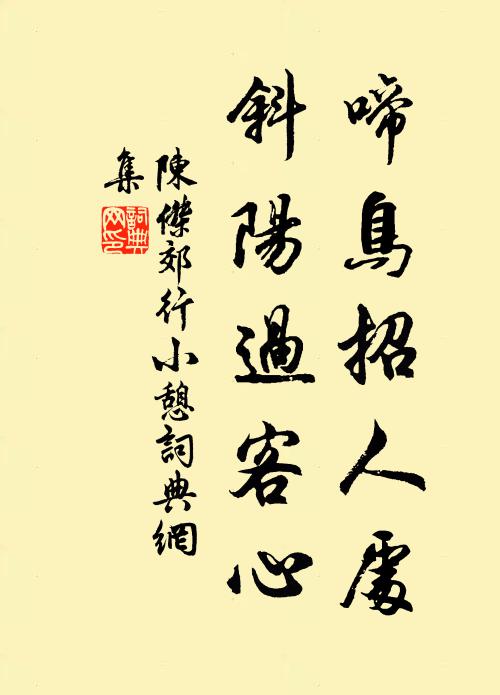 啼鳥招人處
斜陽過客心
陳傑郊行小憩詞典網
集
詞典
网印